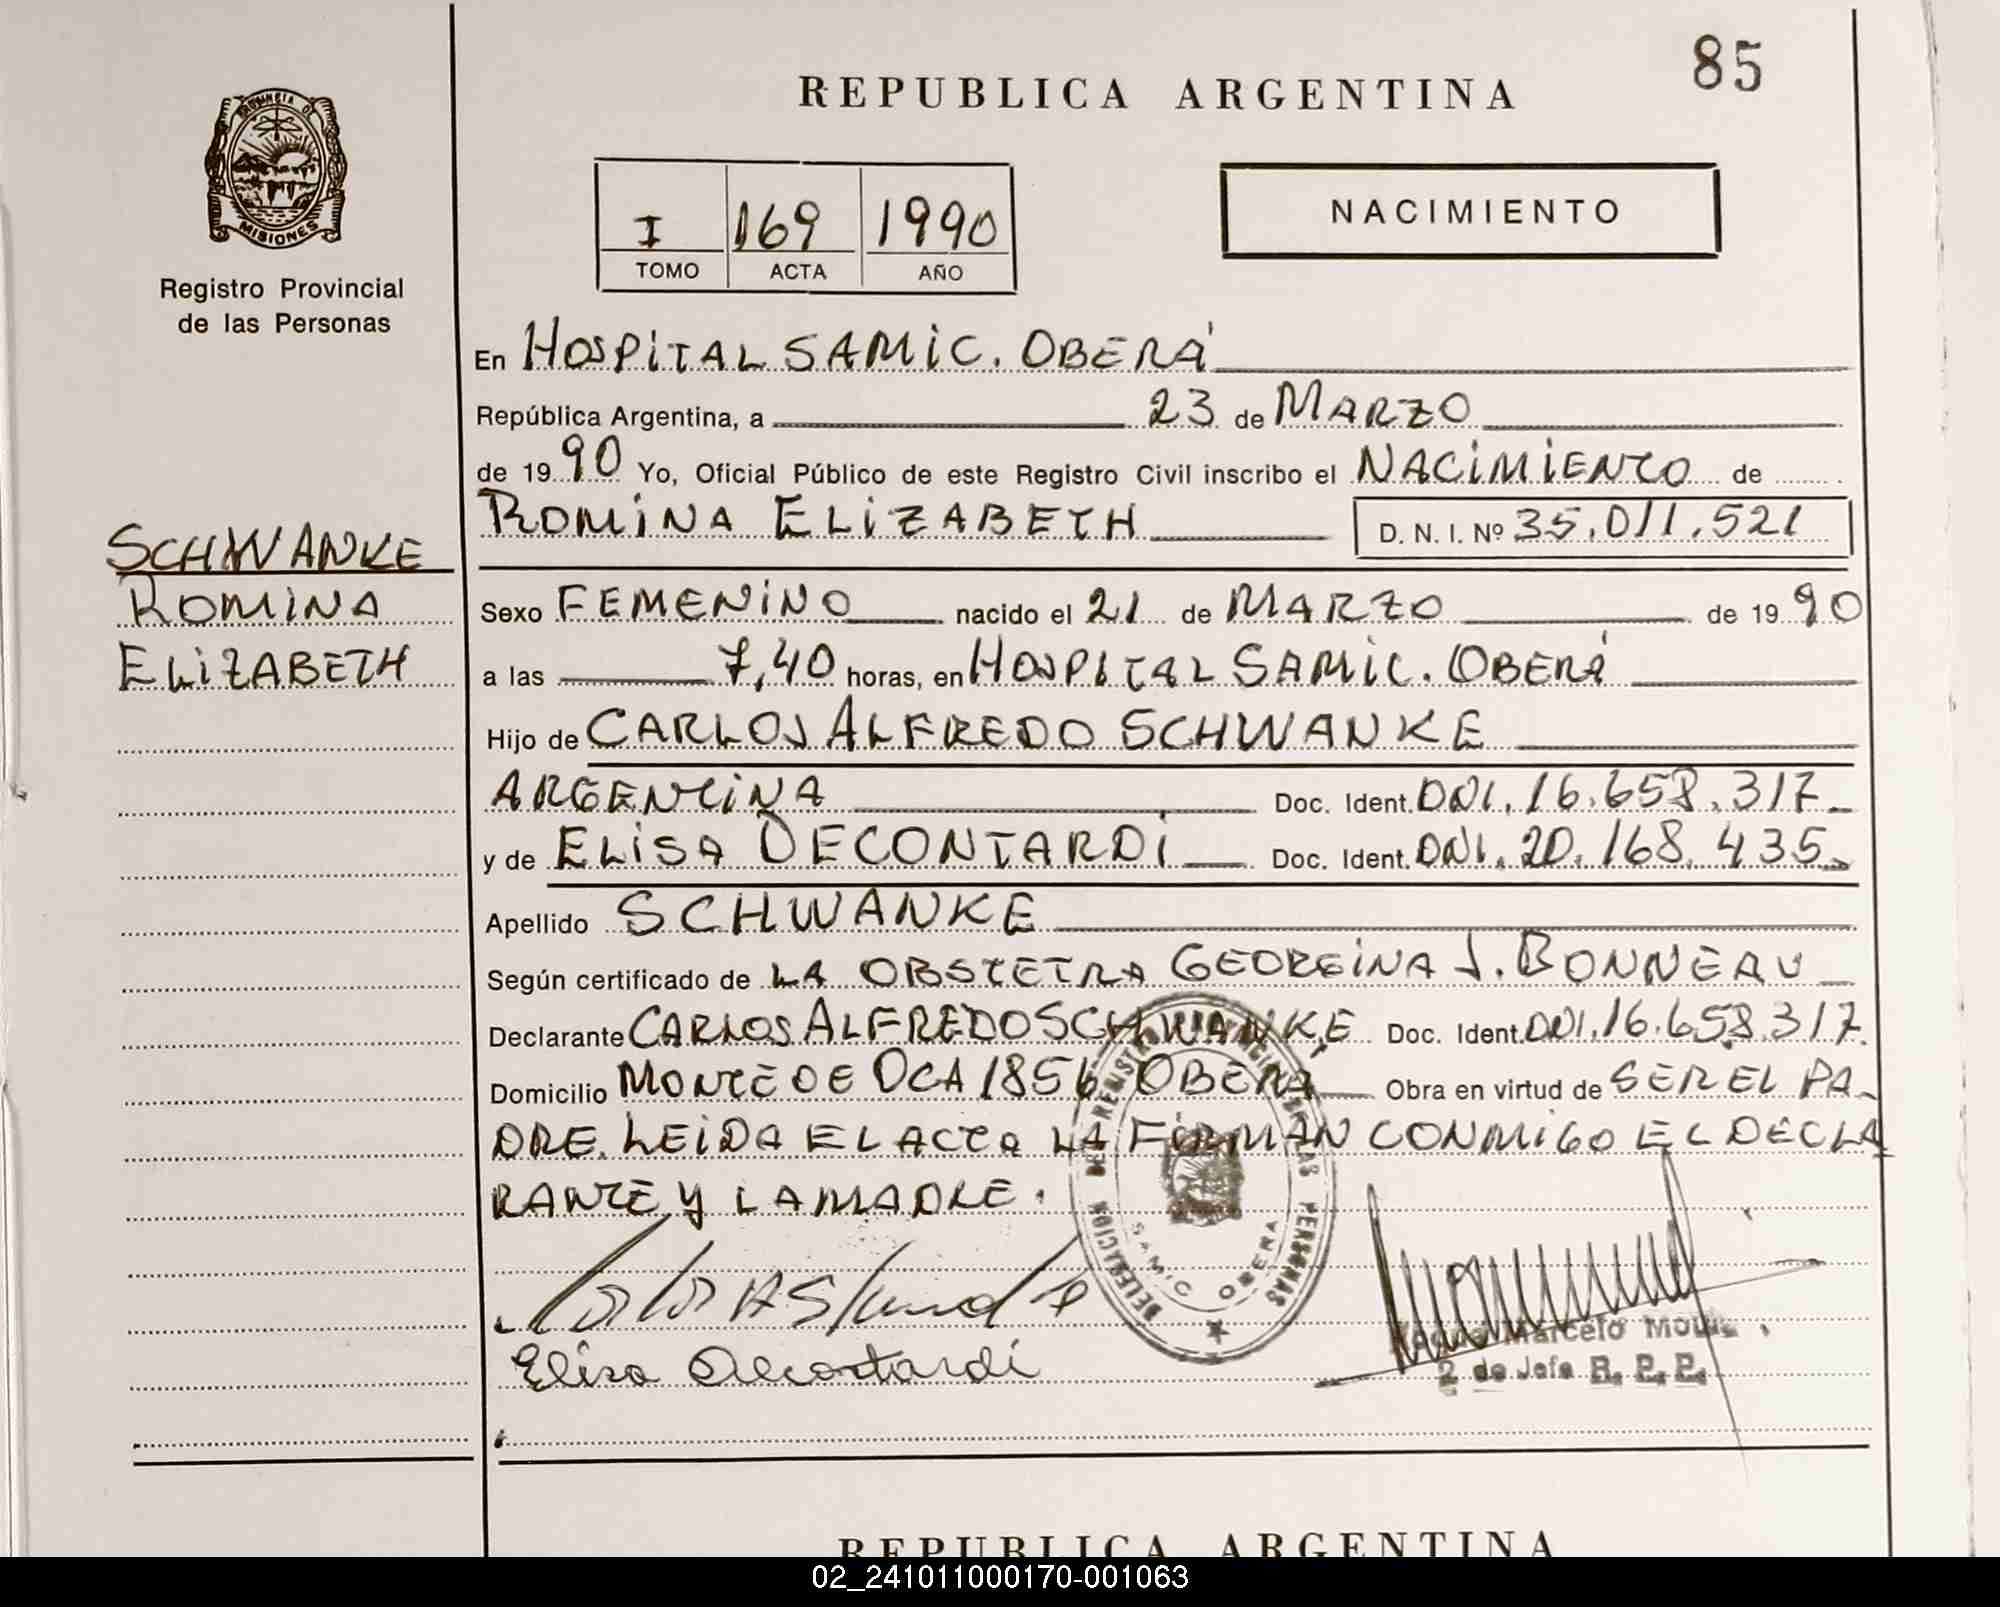 85
REPUBLICA ARGENTINA
PROVINCIA DE
MISIONES
Registro Provincial
de las Personas
I 169 1990
TOMO ACTA AÑO
NACIMIENTO
En HOSPITAL SAMIC. OBERÁ
República Argentina, a 23 de MARZO
de 19 90 Yo, Oficial Público de este Registro Civil inscribo el NACIMIENTO de
ROMINA ELIZABETH D. N. I. Nº 35.011.521
SCHWANKE
ROMINA
ELIZABETH
Sexo FEMENINO nacido el 21 de MARZO de 19 90
a las 7,40 horas, en HOSPITAL SAMIC. OBERÁ
Hijo de CARLOS ALFREDO SCHWANKE
ARGENTINA Doc. Ident. DNI. 16.658.317
y de ELISA DECONTARDI Doc. Ident. DNI. 20.168.435
Apellido SCHWANKE
Según certificado de LA OBSTETRA GEORGINA J. BONNEAU
Declarante CARLOS ALFREDO SCHWANKE Doc. Ident. DNI. 16.658.317
Domicilio MONTE DE OCA 1856 OBERÁ Obra en virtud de SER EL PA-
DRE. LEIDA EL ACTA LA FIRMAN CONMIGO EL DECLA
RANTE Y LA MADRE.
DELEGACION DEL REGISTRO PROVINCIAL DE LAS PERSONAS
SAMIC OBERA
Elisa Decontardi
Marcelo
2 do Jefe R. P. P.
REPUBLICA ARGENTINA
02_241011000170-001063